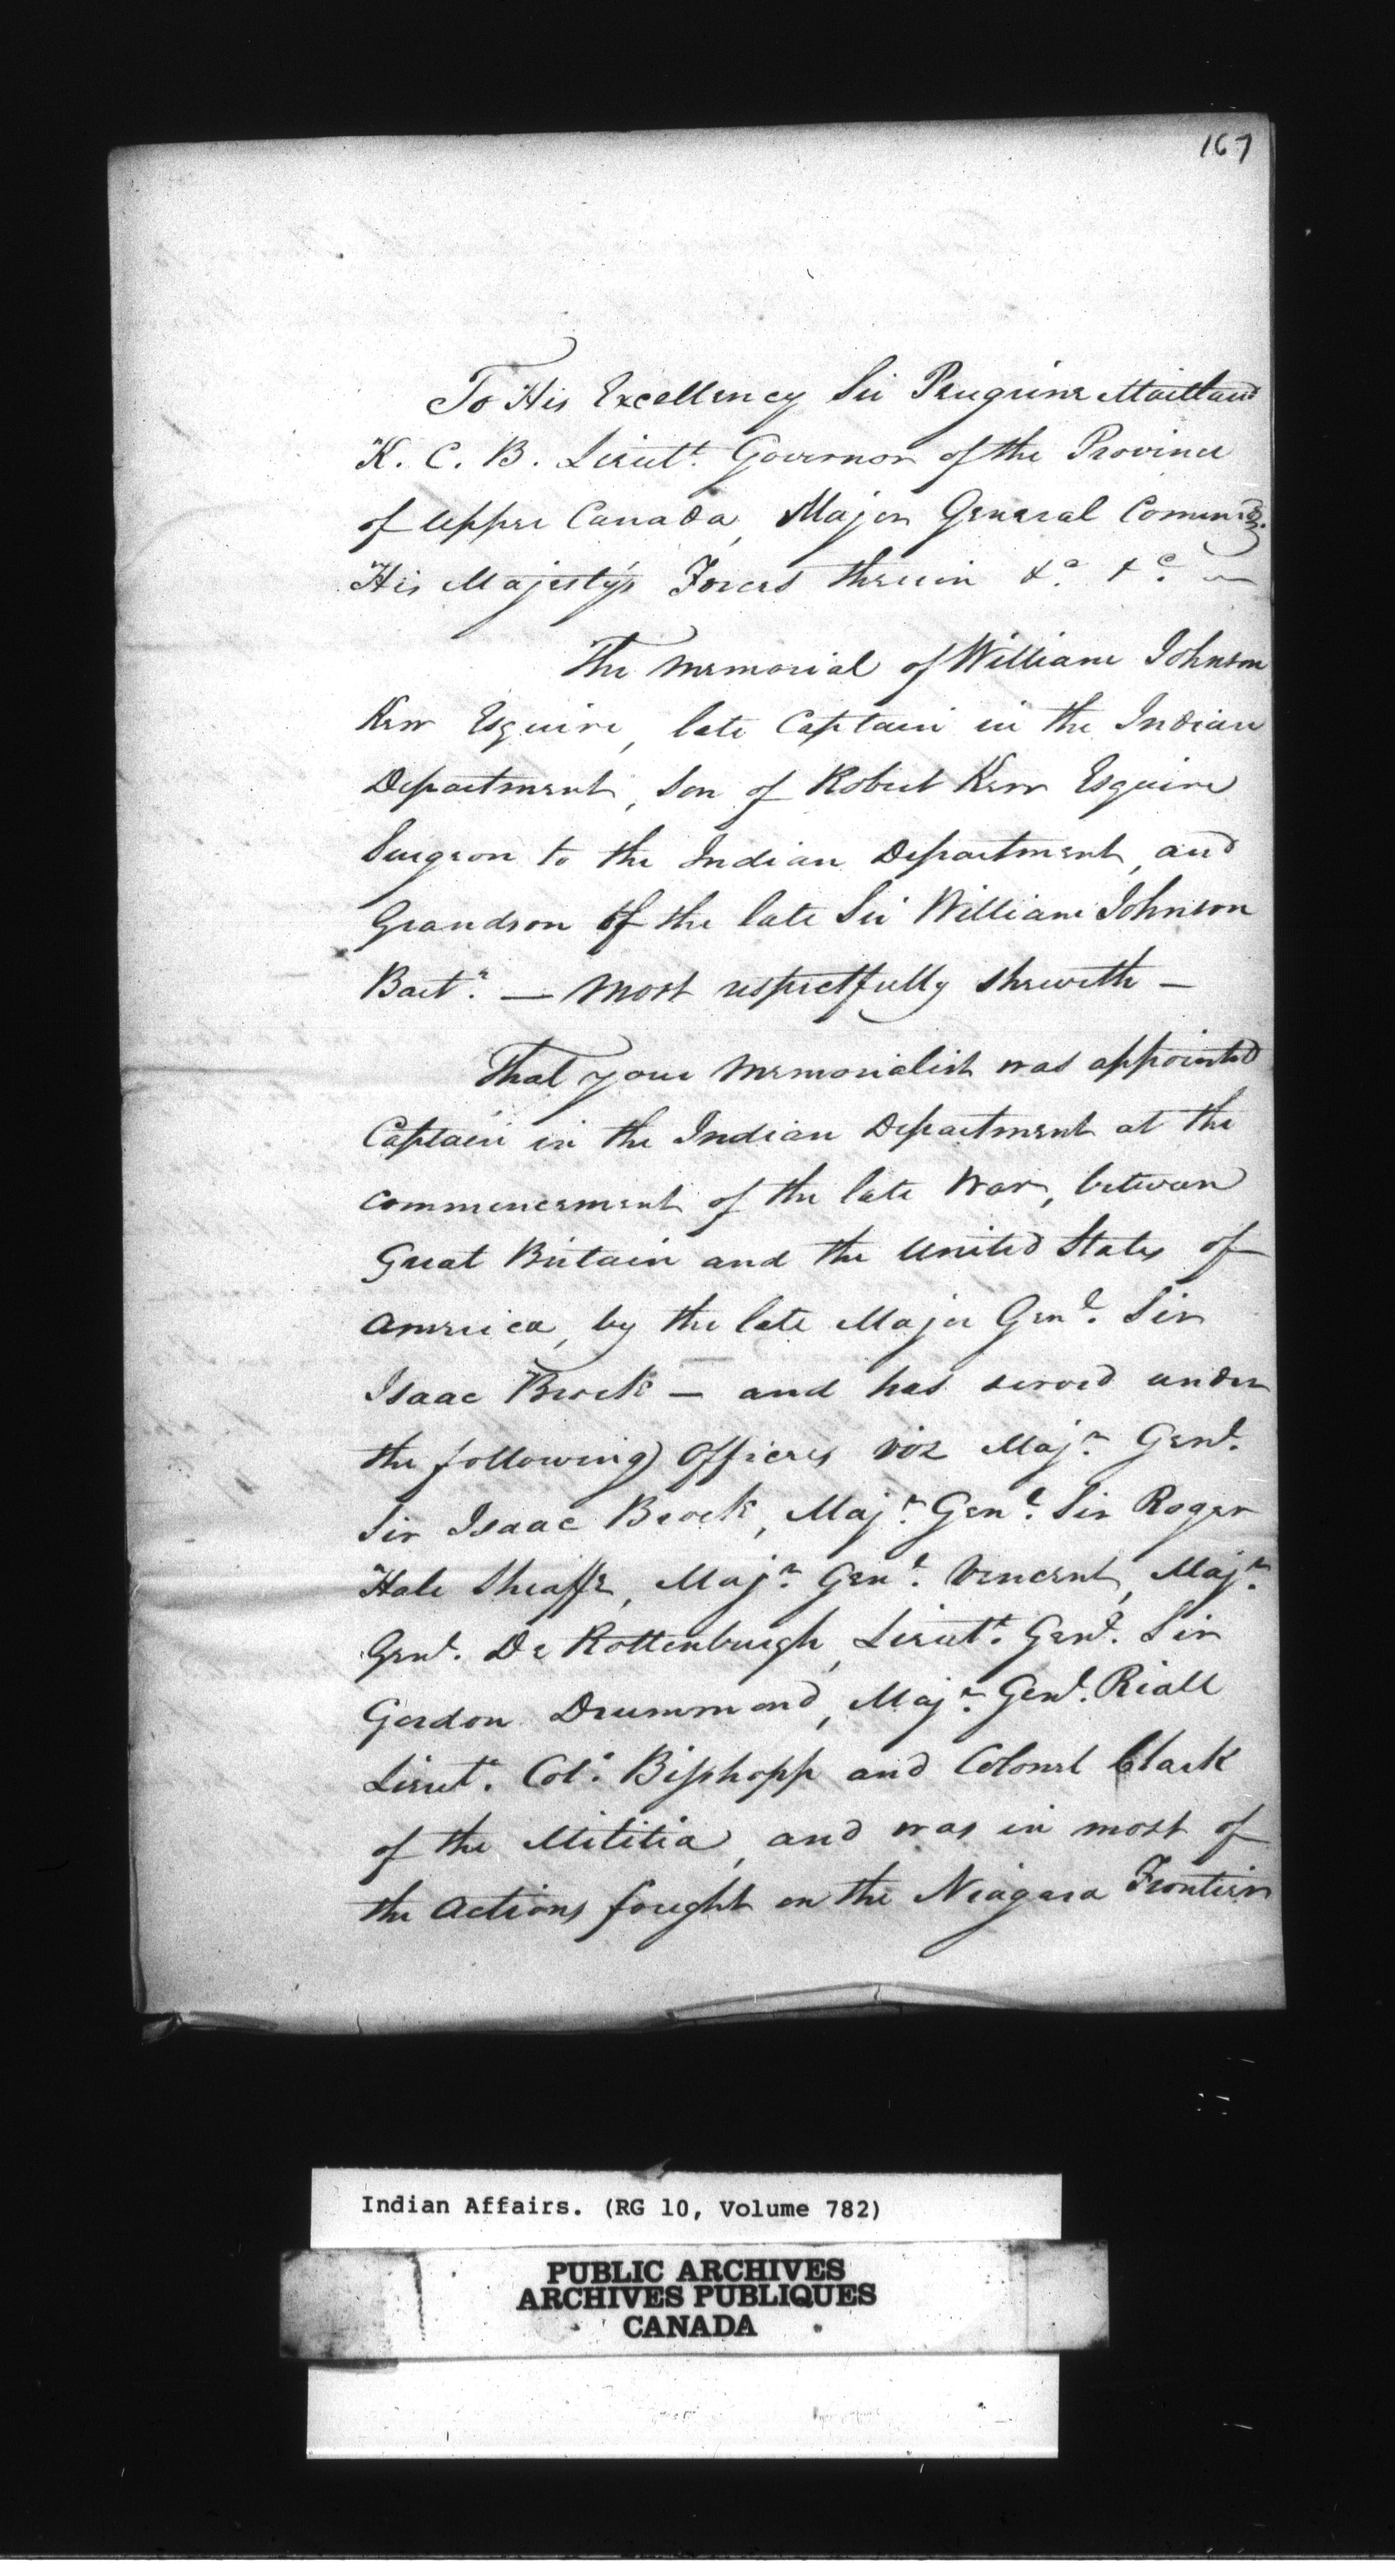 167
To His Excellency Sir Peregrine Maitland
K. C. B. Lieutt. Governor of the Province
of Upper Canada, Major General Commdg.
His Majesty's Forces therein &c. &c.
The Memorial of William Johnson
Kerr Esquire, late Captain in the Indian
Department, Son of Robert Kerr Esquire
Surgeon to the Indian Department, and
Grandson of the late Sir William Johnson
Bart. — Most respectfully sheweth —
That your Memorialist was appointed
Captain in the Indian Department at the
commencement of the late War, between
Great Britain and the United States of
America, by the late Major Genl. Sir
Isaac Brock — and has served under
the following Officers viz Majr. Genl.
Sir Isaac Brock, Majr. Genl. Sir Roger
Hale Sheaffe, Majr. Genl. Vincent, Majr.
Genl. De Rottenburgh, Lieutt. Genl. Sir
Gordon Drummond, Majr. Genl. Riall
Lieut. Col. Bisshopp and Colonel Clark
of the Militia, and was in most of
the Actions fought on the Niagara Frontier
Indian Affairs. (RG 10, Volume 782)
PUBLIC ARCHIVES
ARCHIVES PUBLIQUES
CANADA